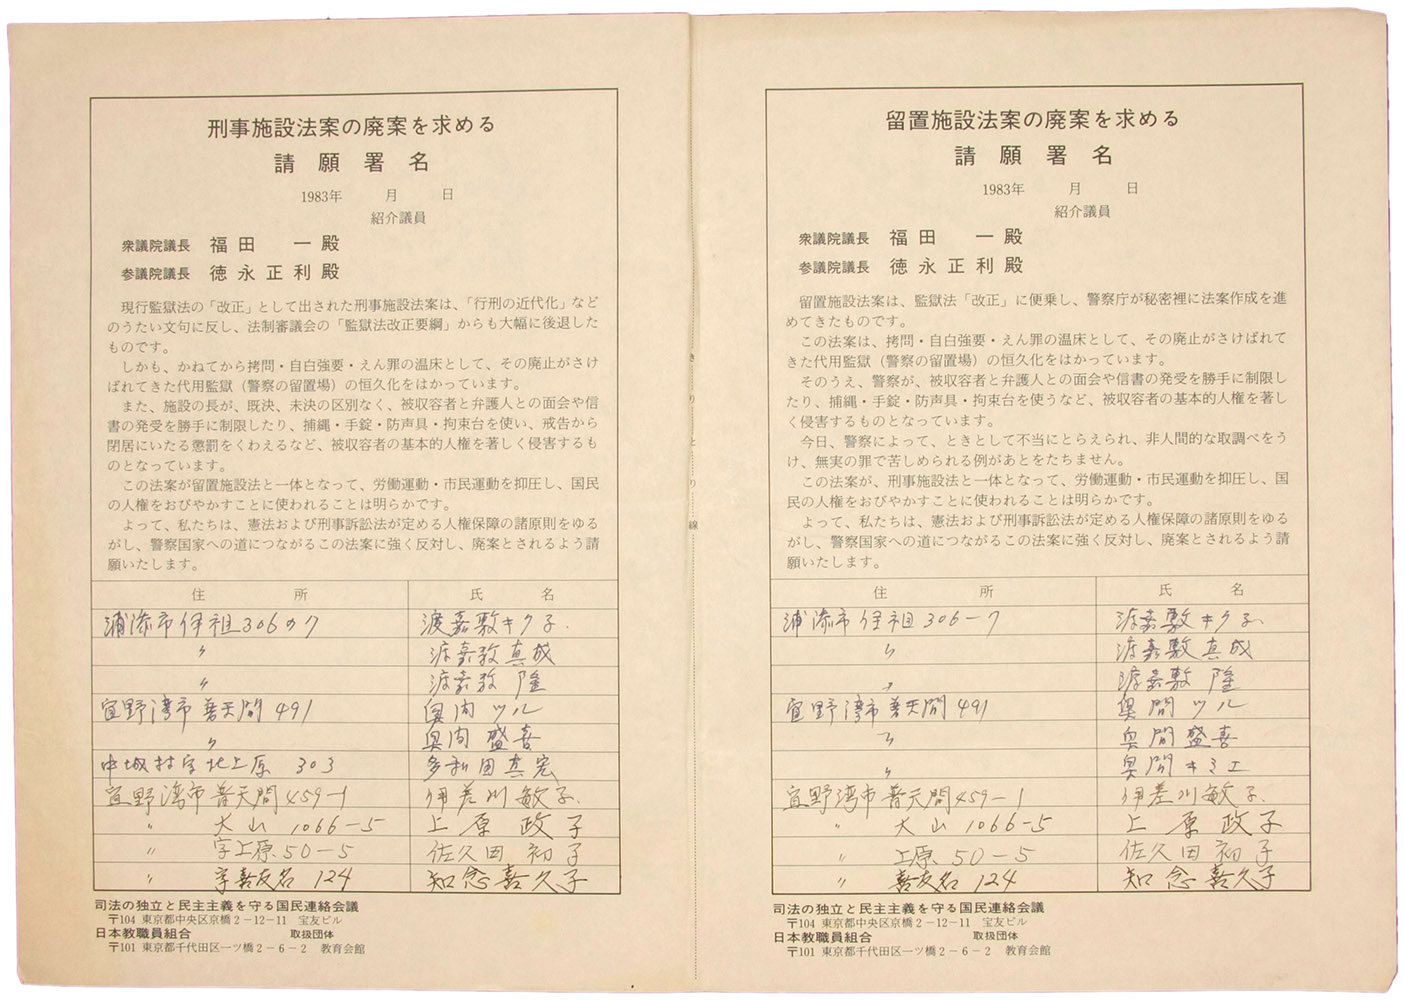 刑事施設法案の廃案を求める
請願署名
1983年 月 日
紹介議員
衆議院議長 福田 一殿
参議院議長 徳永正利殿
現行監獄法の「改正」として出された刑事施設法案は、「行刑の近代化」など
のうたい文句に反し、法制審議会の「監獄法改正要綱」からも大幅に後退した
ものです。
しかも、かねてから拷問・自白強要・えん罪の温床として、その廃止がさけ
ばれてきた代用監獄（警察の留置場）の恒久化をはかっています。
また、施設の長が、既決、未決の区別なく、被収容者と弁護人との面会や信
書の発受を勝手に制限したり、捕縄・手錠・防声具・拘束台を使い、戒告から
閉居にいたる懲罰をくわえるなど、被収容者の基本的人権を著しく侵害するも
のとなっています。
この法案が留置施設法と一体となって、労働運動・市民運動を抑圧し、国民
の人権をおびやかすことに使われることは明らかです。
よって、私たちは、憲法および刑事訴訟法が定める人権保障の諸原則をゆる
がし、警察国家への道につながるこの法案に強く反対し、廃案とされるよう請
願いたします。
住所 氏名
浦添市伊祖306の7 渡嘉敷キク子
〃 渡嘉敷真成
〃 渡嘉敷 隆
宜野湾市普天間491 奥間ツル
〃 奥間盛喜
中城村字北上原 303 多和田真宏
宜野湾市普天間459-1 伊差川敏子
〃 大山 1066-5 上原政子
〃 字上原50-5 佐久田初子
〃 字喜友名 124 知念喜久子
司法の独立と民主主義を守る国民連絡会議
〒104 東京都中央区京橋2-12-11 宝友ビル
日本教職員組合 取扱団体
〒101 東京都千代田区一ツ橋2-6-2 教育会館
きりとり線
留置施設法案の廃案を求める
請願署名
1983年 月 日
紹介議員
衆議院議長 福田 一殿
参議院議長 徳永正利殿
留置施設法案は、監獄法「改正」に便乗し、警察庁が秘密裡に法案作成を進
めてきたものです。
この法案は、拷問・自白強要・えん罪の温床として、その廃止がさけばれて
きた代用監獄（警察の留置場）の恒久化をはかっています。
そのうえ、警察が、被収容者と弁護人との面会や信書の発受を勝手に制限し
たり、捕縄・手錠・防声具・拘束台を使うなど、被収容者の基本的人権を著し
く侵害するものとなっています。
今日、警察によって、ときとして不当にとらえられ、非人間的な取調べをう
け、無実の罪で苦しめられる例があとをたちません。
この法案が、刑事施設法と一体となって、労働運動・市民運動を抑圧し、国
民の人権をおびやかすことに使われることは明らかです。
よって、私たちは、憲法および刑事訴訟法が定める人権保障の諸原則をゆる
がし、警察国家への道につながるこの法案に強く反対し、廃案とされるよう請
願いたします。
住所 氏名
浦添市伊祖306-7 渡嘉敷キク子
〃 渡嘉敷真成
〃 渡嘉敷 隆
宜野湾市普天間491 奥間ツル
〃 奥間盛喜
〃 奥間キミエ
宜野湾市普天間459-1 伊差川敏子
〃 大山 1066-5 上原政子
〃 上原50-5 佐久田初子
〃 喜友名 124 知念喜久子
司法の独立と民主主義を守る国民連絡会議
〒104 東京都中央区京橋2-12-11 宝友ビル
日本教職員組合 取扱団体
〒101 東京都千代田区一ツ橋2-6-2 教育会館